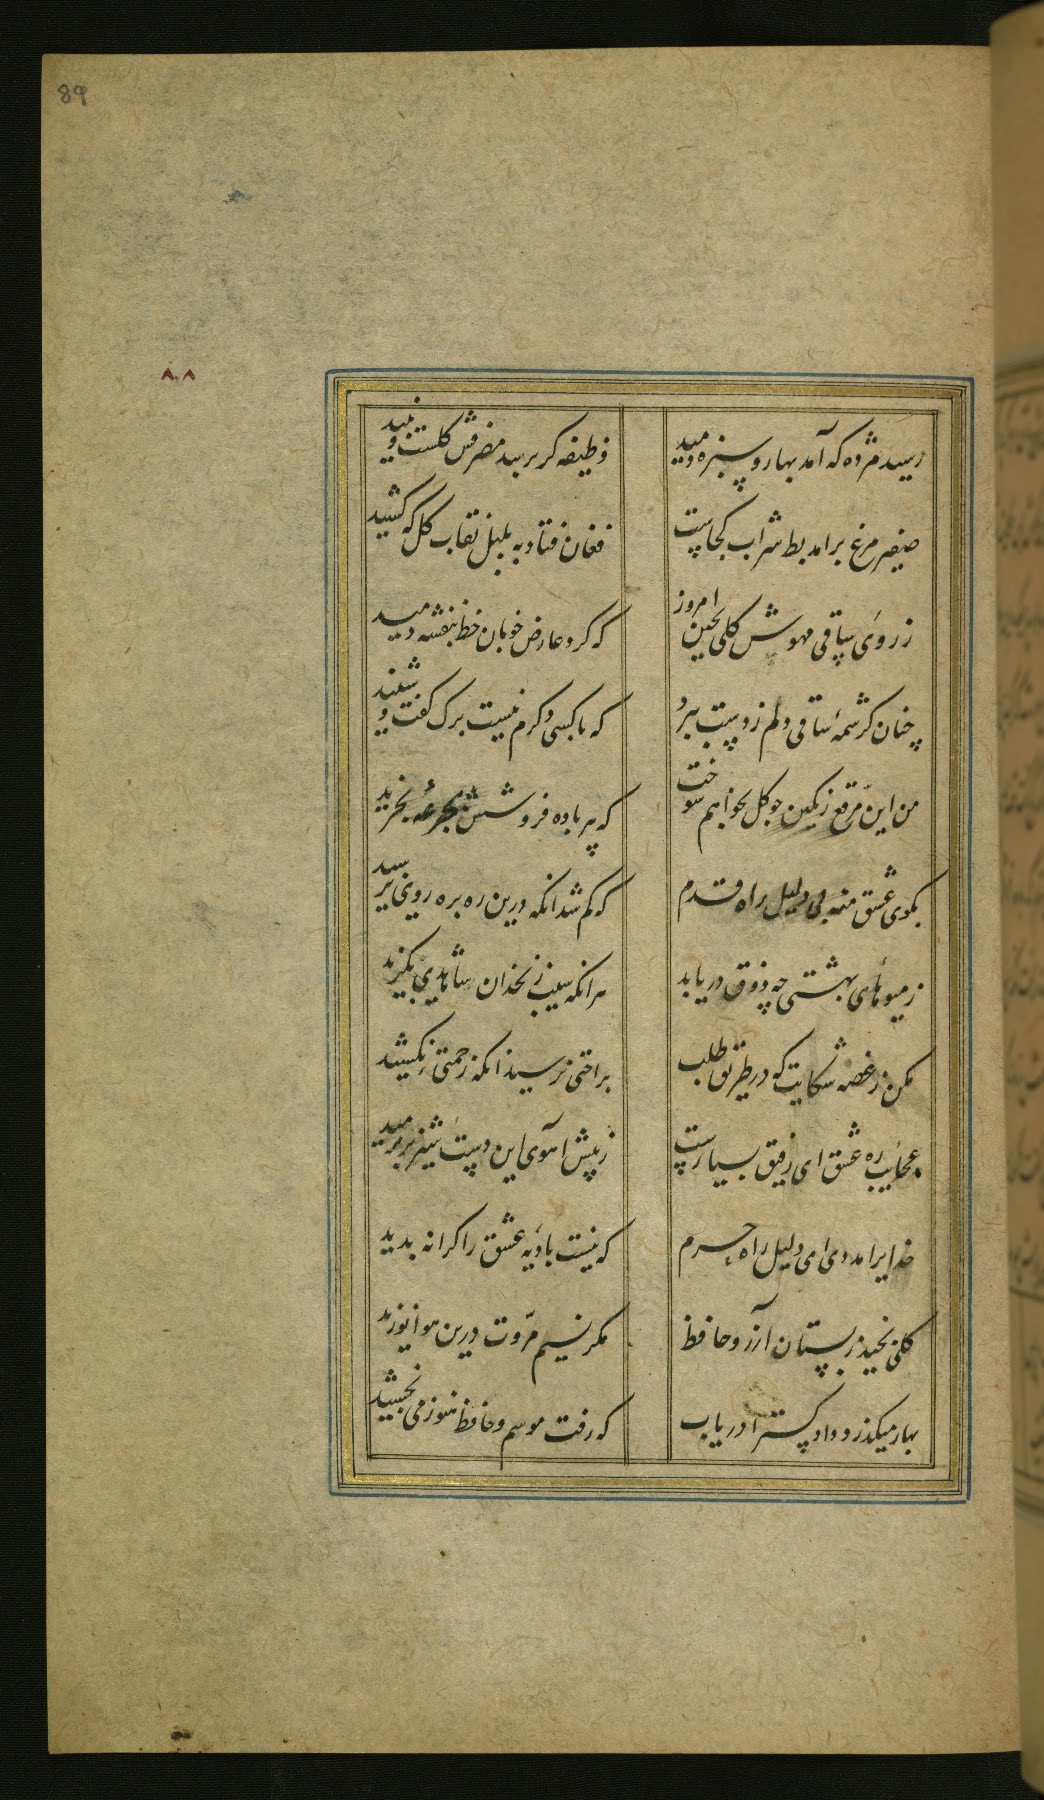 89
۸۰۸
رسید مژده که آمد بهار و سبزه دمید
وظیفه کر برسد مصرفش کلست و نبید
صفیر مرغ برامد بط شراب کجاست
فغان فتاد به بلبل نقاب کل که کشید
ز روی ساقی مهوش کلی بچین امروز
که کرد عارض خوبان خط بنفشه دمید
چنان کرشمهٔ ساقی دلم ز دست ببرد
که با کسی دکرم نیست برک کفت و شنید
من این مرقع رنکین چو کل بخواهم سوخت
که پیر باده فروشش بجرعهٔ نخرید
بکوی عشق منه بی دلیل راه قدم
که کم شد انکه درین ره برهروی نرسید
ز میوهای بهشتی چه ذوق دریابد
هر انکه سیب زنخدان شاهدی نکزید
مکن ز غصه شکایت که در طریق طلب
براحتی نرسید انکه زحمتی نکشید
عجایب ره عشق ای رفیق بسیارست
ز پیش آهوی این دشت شیر نر برمید
خدایرا مددی ای دلیل راه حرم
که نیست بادیه عشق را کرانه بدید
کلی نچید ز بستان آرزو حافظ
مکر نسیم مروت درین هوا نوزید
بهار میکذرد داد کسترا دریاب
که رفت موسم و حافظ هنوز می نچشید